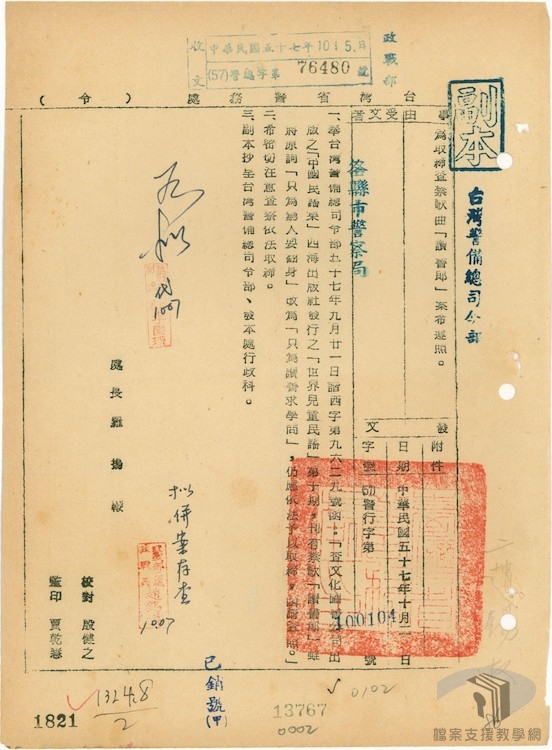 副本
台灣警備總司令部
政戰部
收文
中華民國五十七年10月5日
(57)警總字第76480號
台灣省警務處(令)
事由
為取締查禁歌曲「讀書郎」案希遵照。
受文者
各縣市警察局
發文
附件
日期
中華民國五十七年十月二日
字號
警行字第100104號
一、準台灣警備總司令部五十七年九月廿一日諧西字第九六二九號函:「查文化圖書公司出
版之「中國民謠集」四海出版社發行之「世界兒童民謠」第十期,刊有禁歌「讀書郎」雖
將原詞「只為窮人要翻身」改為「只為讀書求學問」,仍應依法予以取締,函請查照。」
二、希密切注意查察依法取締。
三、副本抄呈台灣警備總司令部、發本處行政科。
處長羅揚鞭
1007
擬併案存查
1007
校對 殷健之
監印 賈乾懋
已銷號(甲)
1821
13248
2
13767
0002
0102
檔案支援教學網